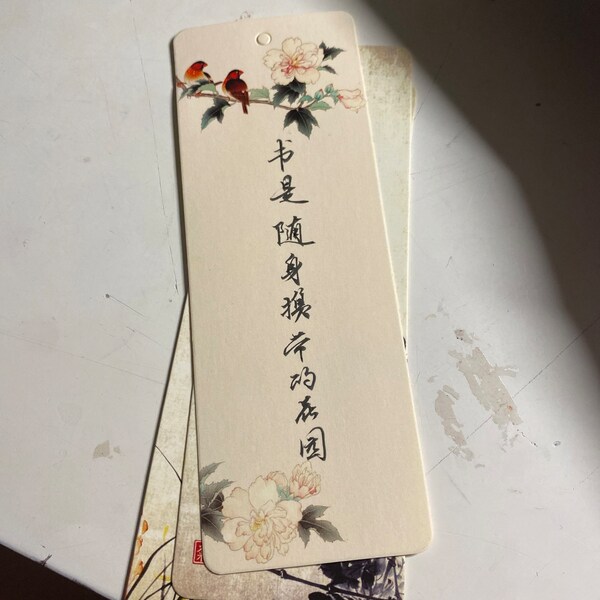 书是随身携带的花园